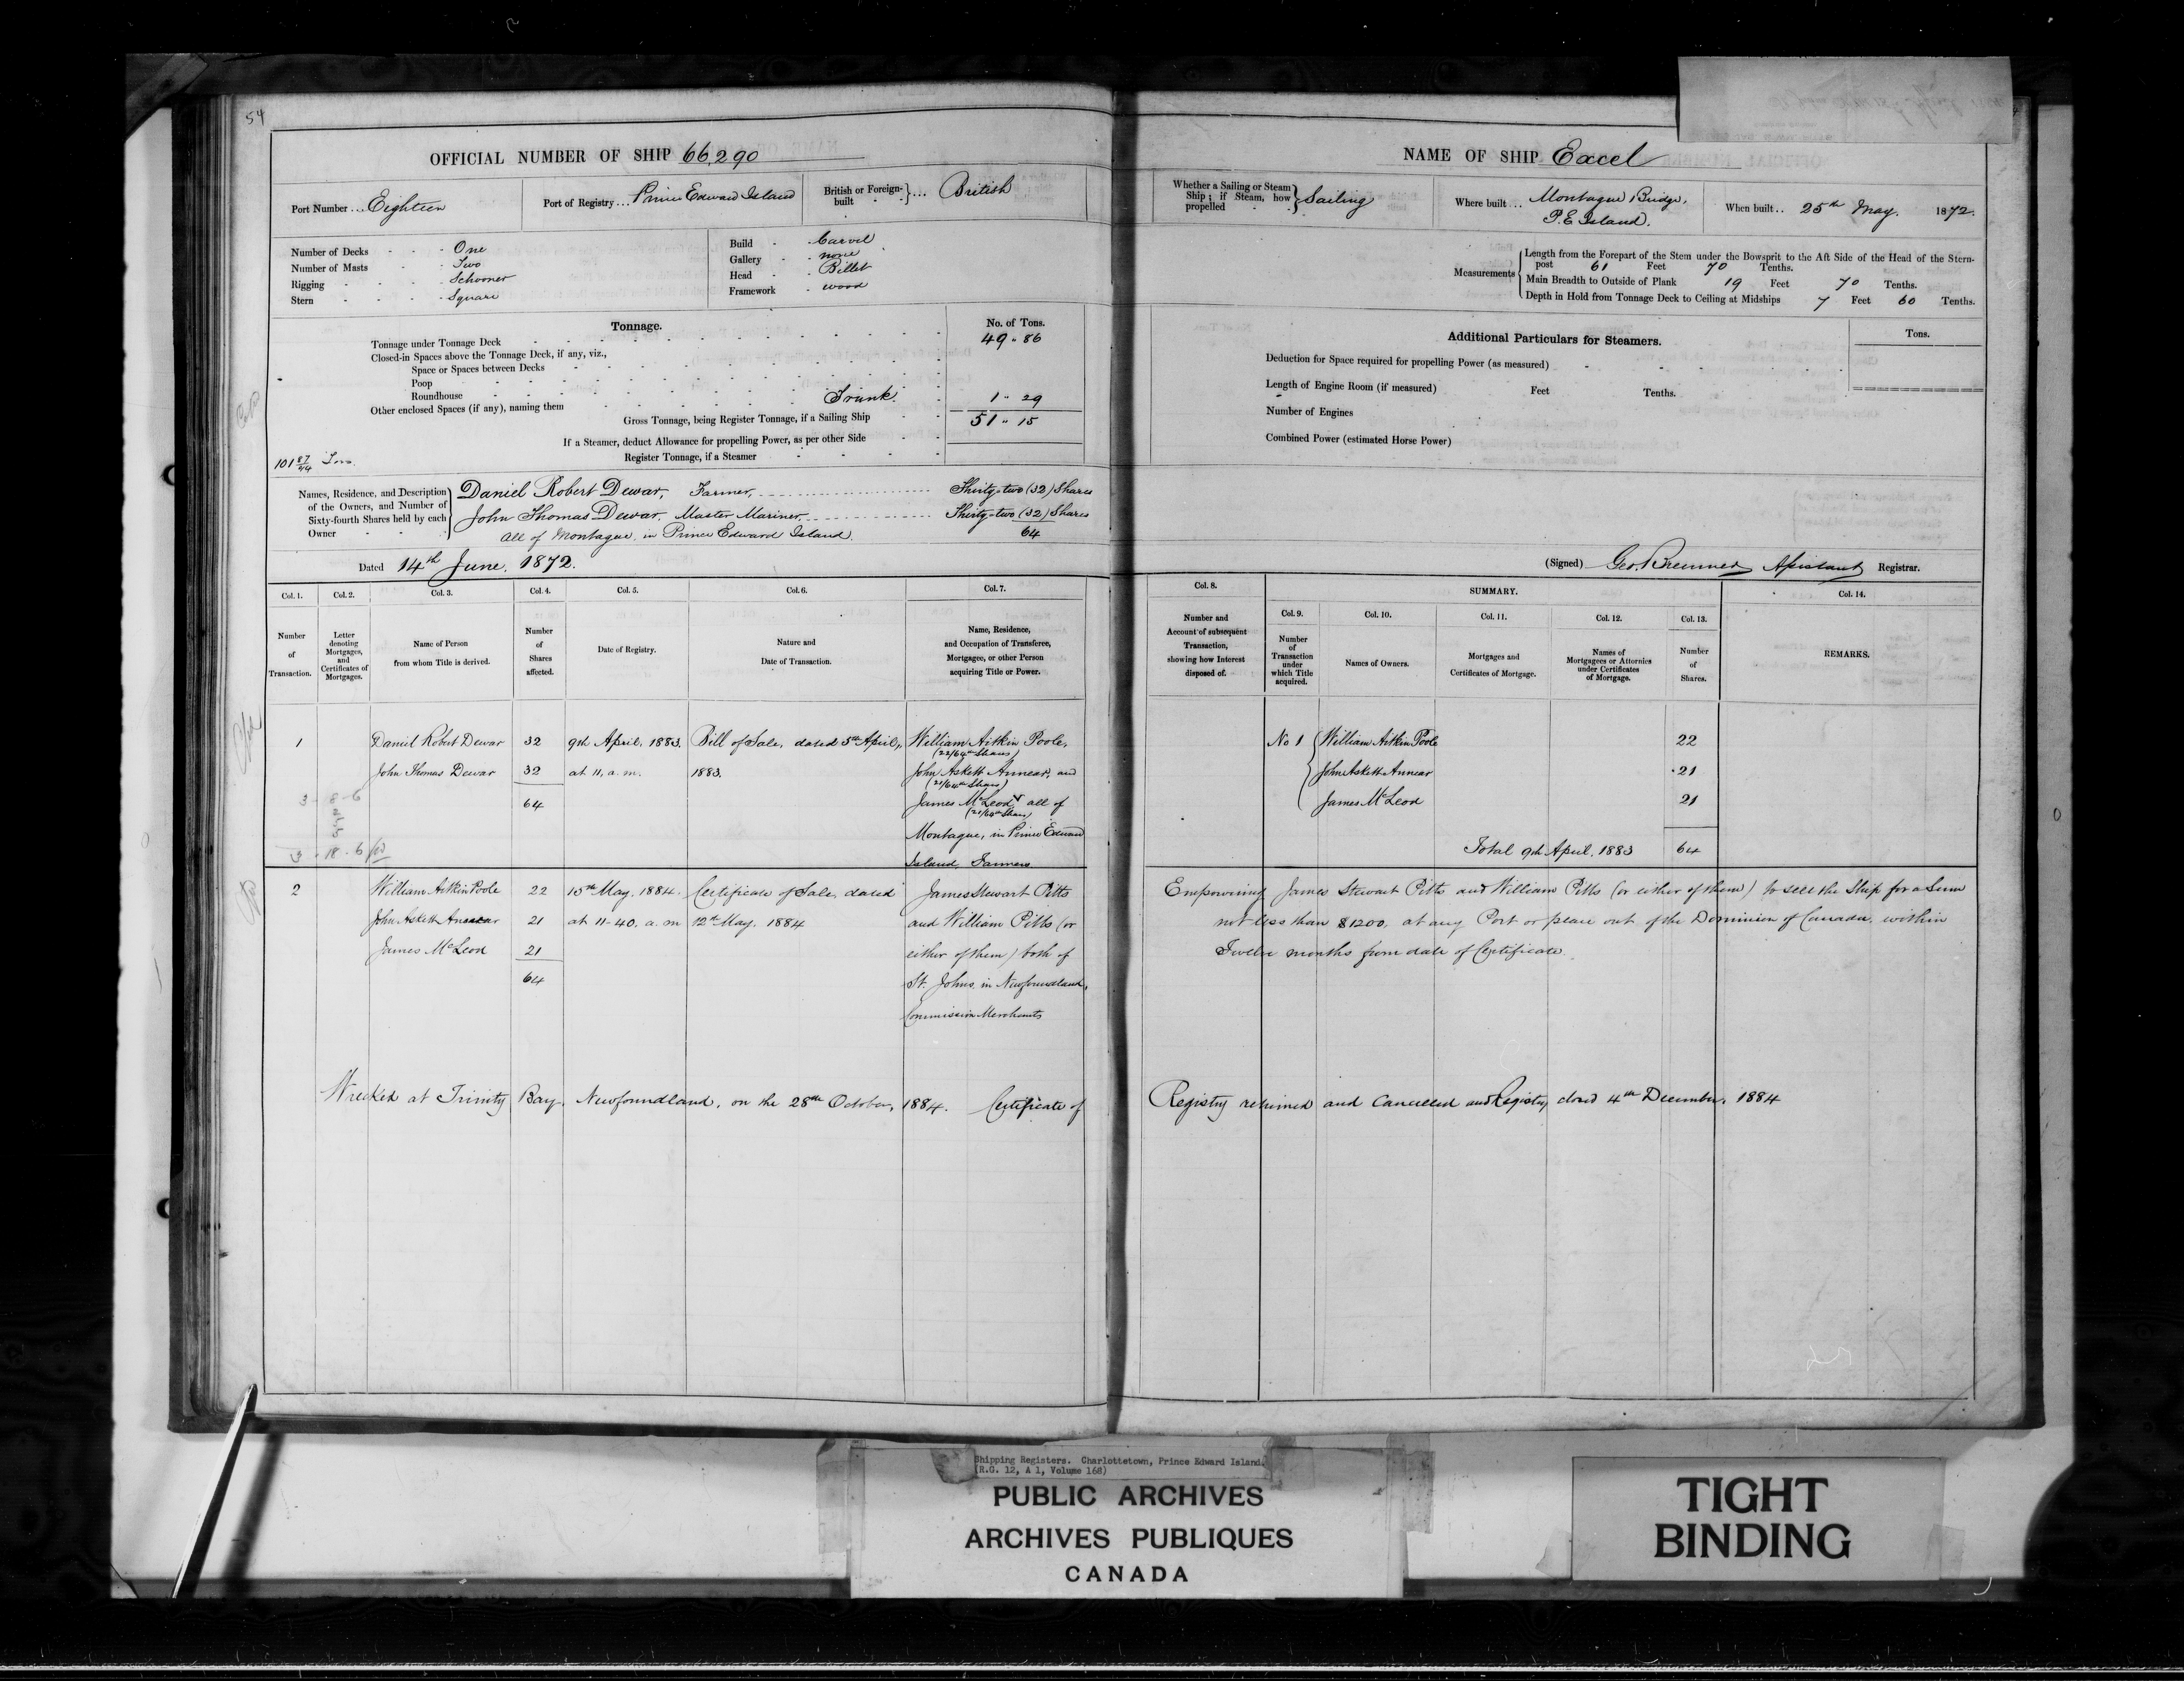 54
OFFICIAL NUMBER OF SHIP 66,290
Port Number ... Eighteen
Port of Registry ... Prince Edward Island
British or Foreign-built } ... British
Number of Decks - - - One
Number of Masts - - Two
Rigging - - - - Schooner
Stern - - - - Square
Build - - Carvel
Gallery - - none
Head - - Billet
Framework - wood
Tonnage.
No. of Tons.
Tonnage under Tonnage Deck 49 .. 86
Closed-in Spaces above the Tonnage Deck, if any, viz.,
Space or Spaces between Decks
Poop
Roundhouse
Other enclosed Spaces (if any), naming them Trunk. 1 .. 29
Gross Tonnage, being Register Tonnage, if a Sailing Ship 51 .. 15
If a Steamer, deduct Allowance for propelling Power, as per other Side
Register Tonnage, if a Steamer
101 87/94 Tons.
Names, Residence, and Description of the Owners, and Number of Sixty-fourth Shares held by each Owner
Daniel Robert Dewar, Farmer, Thirty-two (32) Shares
John Thomas Dewar, Master Mariner, Thirty-two (32) Shares
All of Montague, in Prince Edward Island. 64
Dated 14th June, 1872.
Col. 1. Col. 2. Col. 3. Col. 4. Col. 5. Col. 6. Col. 7.
Number of Transaction.
Letter denoting Mortgages, and Certificates of Mortgages.
Name of Person from whom Title is derived.
Number of Shares affected.
Date of Registry.
Nature and Date of Transaction.
Name, Residence, and Occupation of Transferee, Mortgagee, or other Person acquiring Title or Power.
1 Daniel Robert Dewar 32 9th April, 1883. Bill of Sale, dated 5th April, William Aitkin Poole,
(22/64th Shares)
John Thomas Dewar 32 at 11, a.m. 1883. John Askett Annear, and
(21/64th Shares)
64 James McLeod all of
(21/64th Shares)
Montague, in Prince Edward
Island Farmers
2 William Aitkin Poole 22 15th May, 1884. Certificate of Sale, dated James Stewart Pitts
John Askett Annear 21 at 11-40, a.m 12th May, 1884 and William Pitts (or
James McLeod 21 either of them) both of
64 St. Johns, in Newfoundland,
Commission Merchants
Wrecked at Trinity Bay, Newfoundland, on the 28th October, 1884. Certificate of
NAME OF SHIP Excel
Whether a Sailing or Steam Ship; if Steam, how propelled } Sailing
Where built ... Montague Bridge,
P. E Island.
When built .. 25th May. 1872.
Measurements
Length from the Forepart of the Stem under the Bowsprit to the Aft Side of the Head of the Stern-
post 61 Feet 70 Tenths.
Main Breadth to Outside of Plank 19 Feet 70 Tenths.
Depth in Hold from Tonnage Deck to Ceiling at Midships 7 Feet 60 Tenths.
Additional Particulars for Steamers.
Tons.
Deduction for Space required for propelling Power (as measured)
Length of Engine Room (if measured) Feet Tenths.
Number of Engines
Combined Power (estimated Horse Power)
(Signed) Geo. Bremner Assistant Registrar.
Col. 8. SUMMARY. Col. 14.
Col. 9. Col. 10. Col. 11. Col. 12. Col. 13.
Number and Account of subsequent Transaction, showing how Interest disposed of.
Number of Transaction under which Title acquired.
Names of Owners.
Mortgages and Certificates of Mortgage.
Names of Mortgagees or Attornies under Certificates of Mortgage.
Number of Shares.
REMARKS.
No 1 William Aitkin Poole 22
John Askett Annear 21
James McLeod 21
Total 9th April, 1883 64
Empowering James Stewart Pitts and William Pitts (or either of them) to sell the Ship for a Sum
not less than $1200, at any Port or place out of the Dominion of Canada, within
Twelve months from date of Certificate.
Registry returned and Cancelled and Registry closed 4th December, 1884
Shipping Registers. Charlottetown, Prince Edward Island.
(R.G. 12, A 1, Volume 168)
PUBLIC ARCHIVES
ARCHIVES PUBLIQUES
CANADA
TIGHT
BINDING